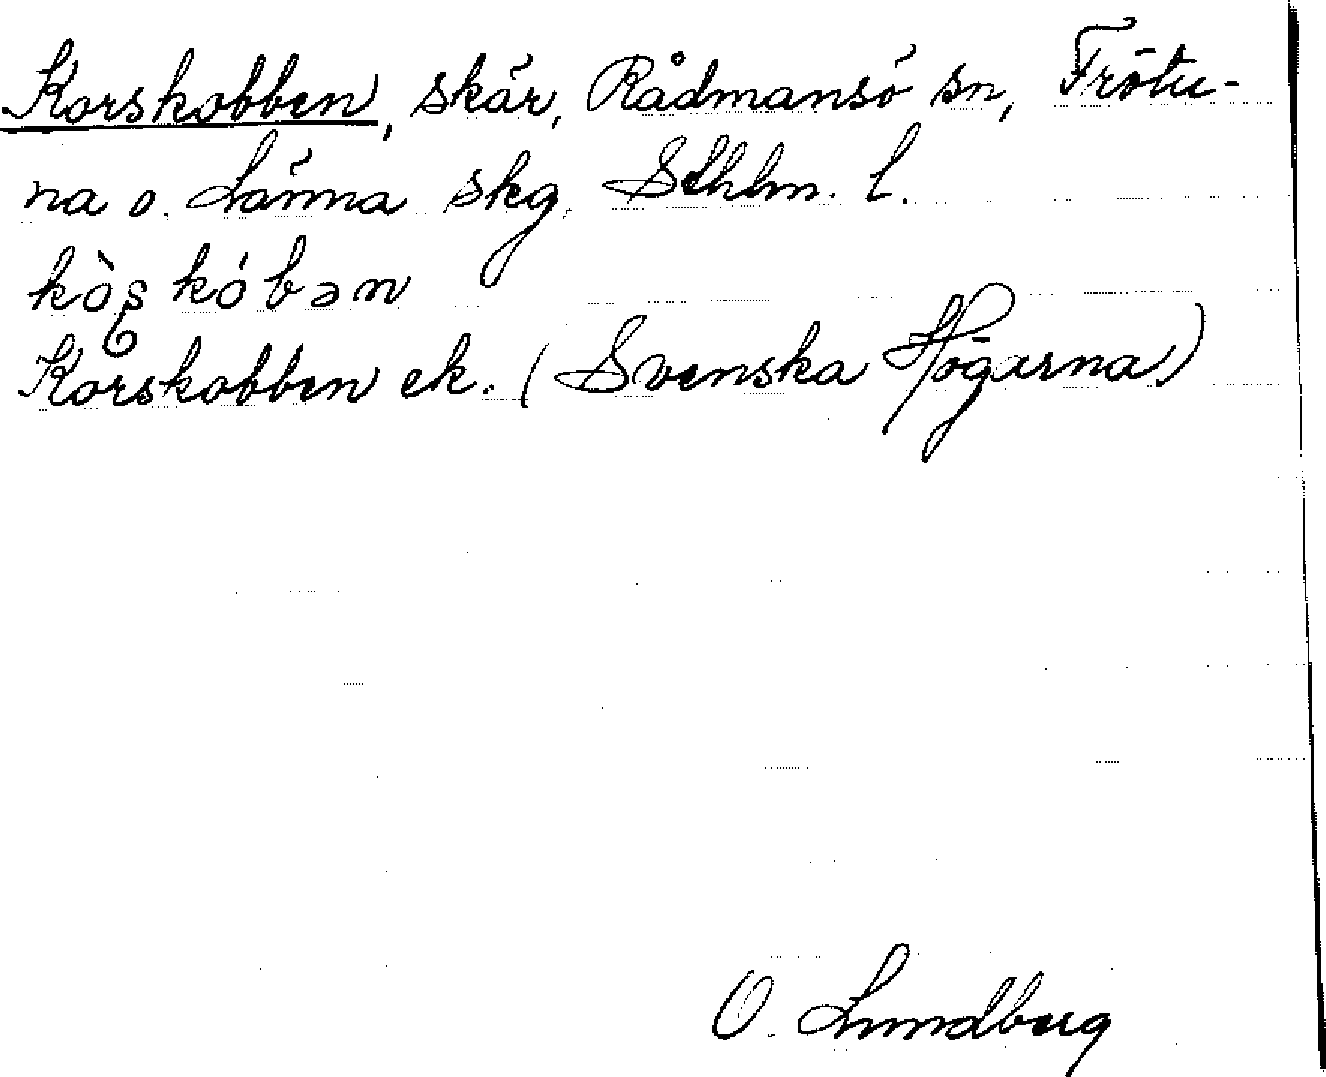 Korskobben, skär, Rådmansö sn, Frötu-
na o. Länna skg, Sthlm. l.
kòʂkóbən
Korskobben ek. (Svenska Högarna)
O. Lundberg